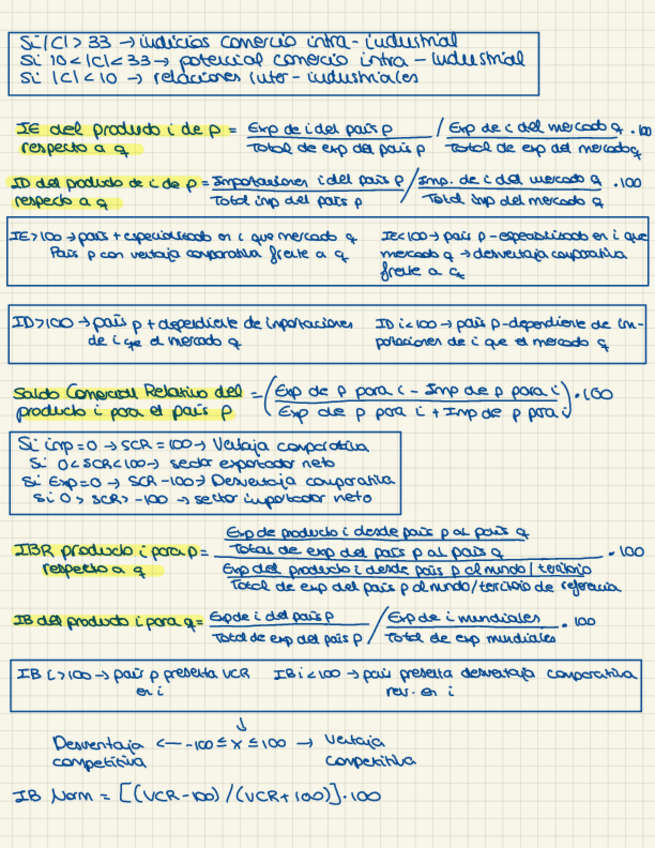 Si |C| > 33 → indicios comercio intra-industrial
Si 10 < |C| < 33 → potencial comercio intra-industrial
Si |C| < 10 → relaciones inter-industriales
IE del producto i de p = Exp de i del país p / Exp de i del mercado q · 100
respecto a q Total de exp del país p Total de exp del mercado q
ID del producto de i de p = Importaciones i del país p / Imp. de i del mercado q · 100
respecto a q Total imp del país p Total imp del mercado q
IE > 100 → país + especializado en i que mercado q
País p con ventaja comparativa frente a q
IE < 100 → país p - especializado en i que
mercado q → desventaja comparativa
frente a q
ID > 100 → país p + dependiente de importaciones
de i que el mercado q
ID i < 100 → país p - dependiente de im-
portaciones de i que el mercado q
Saldo Comercial Relativo del = (Exp de p para i - Imp de p para i) · 100
producto i para el país p Exp de p para i + Imp de p para i
Si imp = 0 → SCR = 100 → Ventaja comparativa
Si 0 < SCR < 100 → sector exportador neto
Si Exp = 0 → SCR - 100 → Desventaja comparativa
Si 0 > SCR > -100 → sector importador neto
Exp de producto i desde país p al país q
IBR producto i para p = Total de exp del país p al país q · 100
respecto a q Exp del producto i desde país p al mundo / territorio
Total de exp del país p al mundo / territorio de referencia
IB del producto i para q = Exp de i del país p / Exp de i mundiales · 100
Total de exp del país p Total de exp mundiales
IB i > 100 → país p presenta VCR
en i
IB i < 100 → país presenta desventaja comparativa
rev. en i
↓
Desventaja ← -100 ≤ x ≤ 100 → Ventaja
competitiva competitiva
IB Norm = [(VCR - 100) / (VCR + 100)] · 100